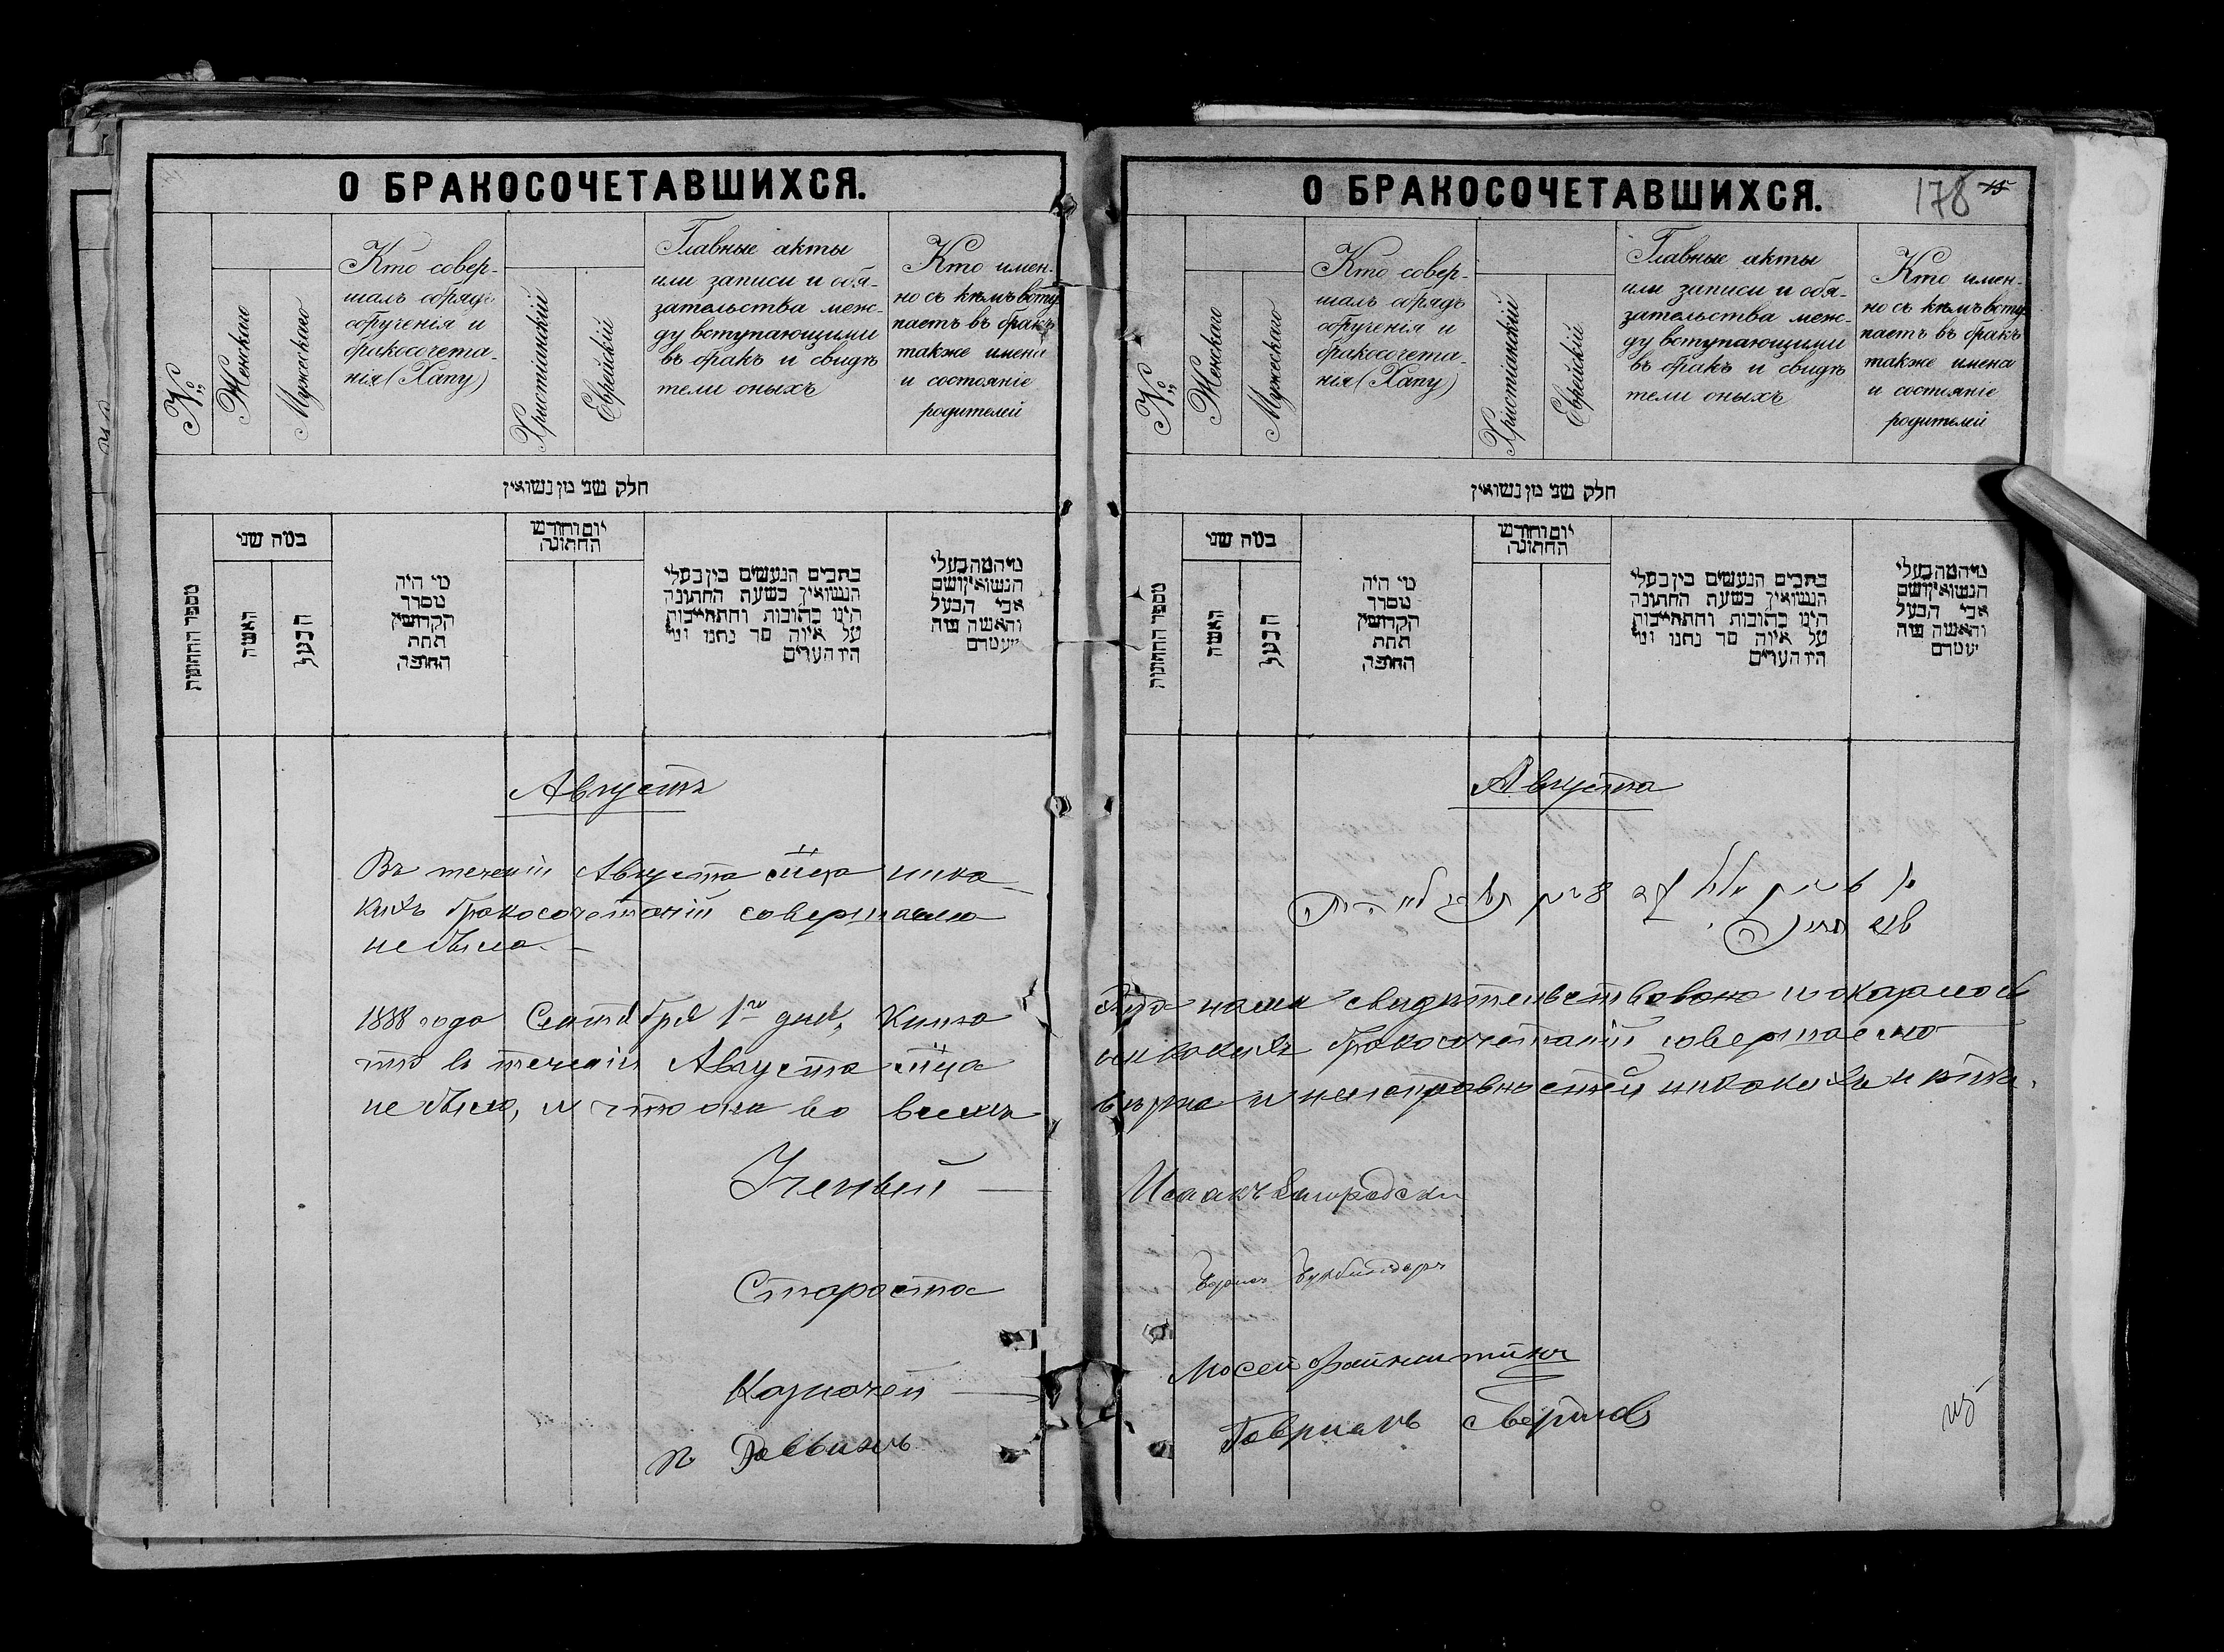 О БРАКОСОЧЕТАВШИХСЯ.
№
Женскаго
Мужескаго
Кто совер-
шалъ обрядъ
обрученія и
бракосочета-
нія (Хапу)
Христіанскій
Еврейскій
Главные акты
или записи и обя-
зательства меж-
ду вступающими
въ бракъ и свидѣ
тели оныхъ
Кто имен-
но съ кѣмъ всту
паетъ въ бракъ
также имена
и состояніе
родителей
חלק שני מן נשואין
מספר החתונות
כמה שני
האשה
הבעל
מי היה
מסדר
הקדושין
תחת
החופה
יום וחודש
החתונה
כתבים הנעשים בין בעלי
הנשואין בשעת החתונה
היינו כתובות והתחייבות
על איזה סך נתנו ומי
היו העדים
מי המה בעלי
הנשואין ושם
אבי הבעל
והאשה מה
Августъ
Въ теченіи Августа м-ца ника-
кихъ бракосочетаній совершаемо
не было. –
1888 года Сентября 1го дня, Книга
что въ теченіи Августа м-ца
не было, и что она во всемъ
Ученый —
Староста
Казначей —
п. Раввинъ
О БРАКОСОЧЕТАВШИХСЯ.
178
15
№
Женскаго
Мужескаго
Кто совер-
шалъ обрядъ
обрученія и
бракосочета-
нія (Хапу)
Христіанскій
Еврейскій
Главные акты
или записи и обя-
зательства меж-
ду вступающими
въ бракъ и свидѣ
тели оныхъ
Кто имен-
но съ кѣмъ всту
паетъ въ бракъ
также имена
и состояніе
родителей
חלק שני מן נשואין
מספר החתונות
כמה שני
האשה
הבעל
מי היה
מסדר
הקדושין
תחת
החופה
יום וחודש
החתונה
כתבים הנעשים בין בעלי
הנשואין בשעת החתונה
היינו כתובות והתחייבות
על איזה סך נתנו ומי
היו העדים
מי המה בעלי
הנשואין ושם
אבי הבעל
והאשה מה
Августа
нами свидѣтельствована и оказалось
никакихъ бракосочетаній совершаемо
вѣрна и неисправностей никакихъ нѣтъ.
Исаакъ
Мосей Файнштейнъ
Гавріилъ